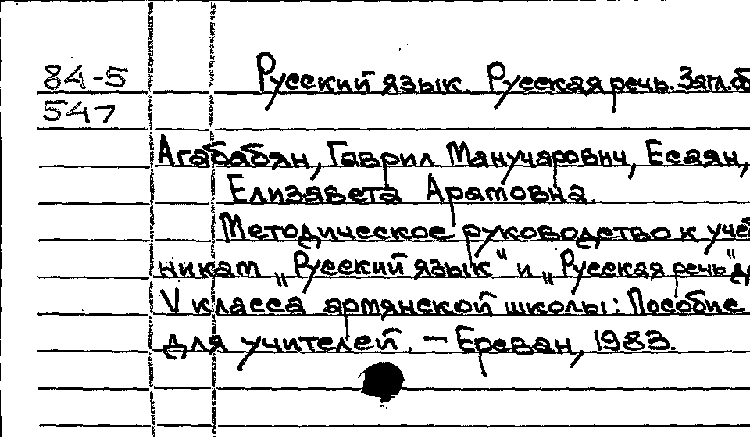 84-5 Русский язык. Русская речь. Загл. б
547
Агабабян, Гаврил Манучарович, Есаян,
Елизавета Арамовна.
Методическое руководство к учеб
никам „Русский язык" и „Русская речь" д
V класса армянской школы: Пособие
для учителей. — Ереван, 1983.